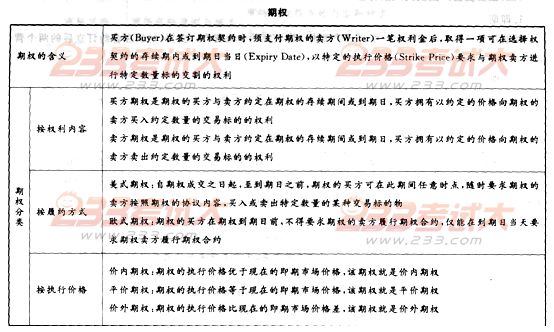 期权
期权的含义
买方(Buyer)在签订期权契约时,预支付期权的卖方(Writer)一笔权利金后,取得一项可在选择权
契约的存续期内或到期日当日(Expiry Date),以特定的执行价格(Strike Price)要求与期权卖方进
行特定数量标的交割的权利
期权分类
按权利内容
买方期权是期权的买方与卖方约定在期权的存续期间或到期日,买方拥有以约定的价格向期权的
卖方买入约定数量的交易标的的权利
卖方期权是期权的买方与卖方约定在期权的存续期间或到期日,买方拥有以约定的价格向期权的
卖方卖出约定数量的交易标的的权利
按履约方式
美式期权:自期权成交之日起,至到期日之前,期权的买方可在此期间任意时点,随时要求期权的
卖方按照期权的协议内容,买入或卖出特定数量的某种交易标的物
欧式期权:期权的买方在期权到期日前、不得要求期权的卖方履行期权合约,仅能在到期日当天要
求期权卖方履行期权合约
按执行价格
价内期权:期权的执行价格优于现在的即期市场价格,该期权就是价内期权
平价期权:期权的执行价格等于现在的即期市场价格,该期权就是平价期权
价外期权:期权的执行价格比现在的即期市场价格差,该期权就是价外期权
233考试大
www.233.com